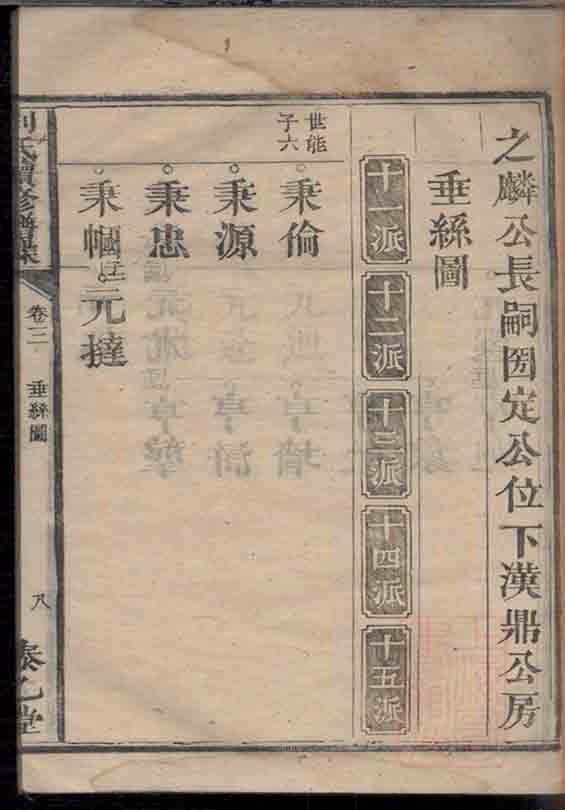 之麟公長嗣圀定公位下漢鼎公房
垂絲圖
十一派
十二派
十三派
十四派
十五派
世能
子六
秉倫
秉源
秉忠
秉幗 元撻
氏續修譜
卷三
垂絲圖
八
乙堂